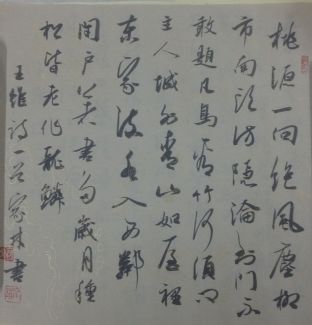 桃源一向絕風塵柳
市南頭訪隱淪到門不
敢題凡鳥看竹何須問
主人城外青山如屋裡
東家流水入西鄰
閉戶著書多歲月種
松皆老作龍鱗
王維詩一首 林書